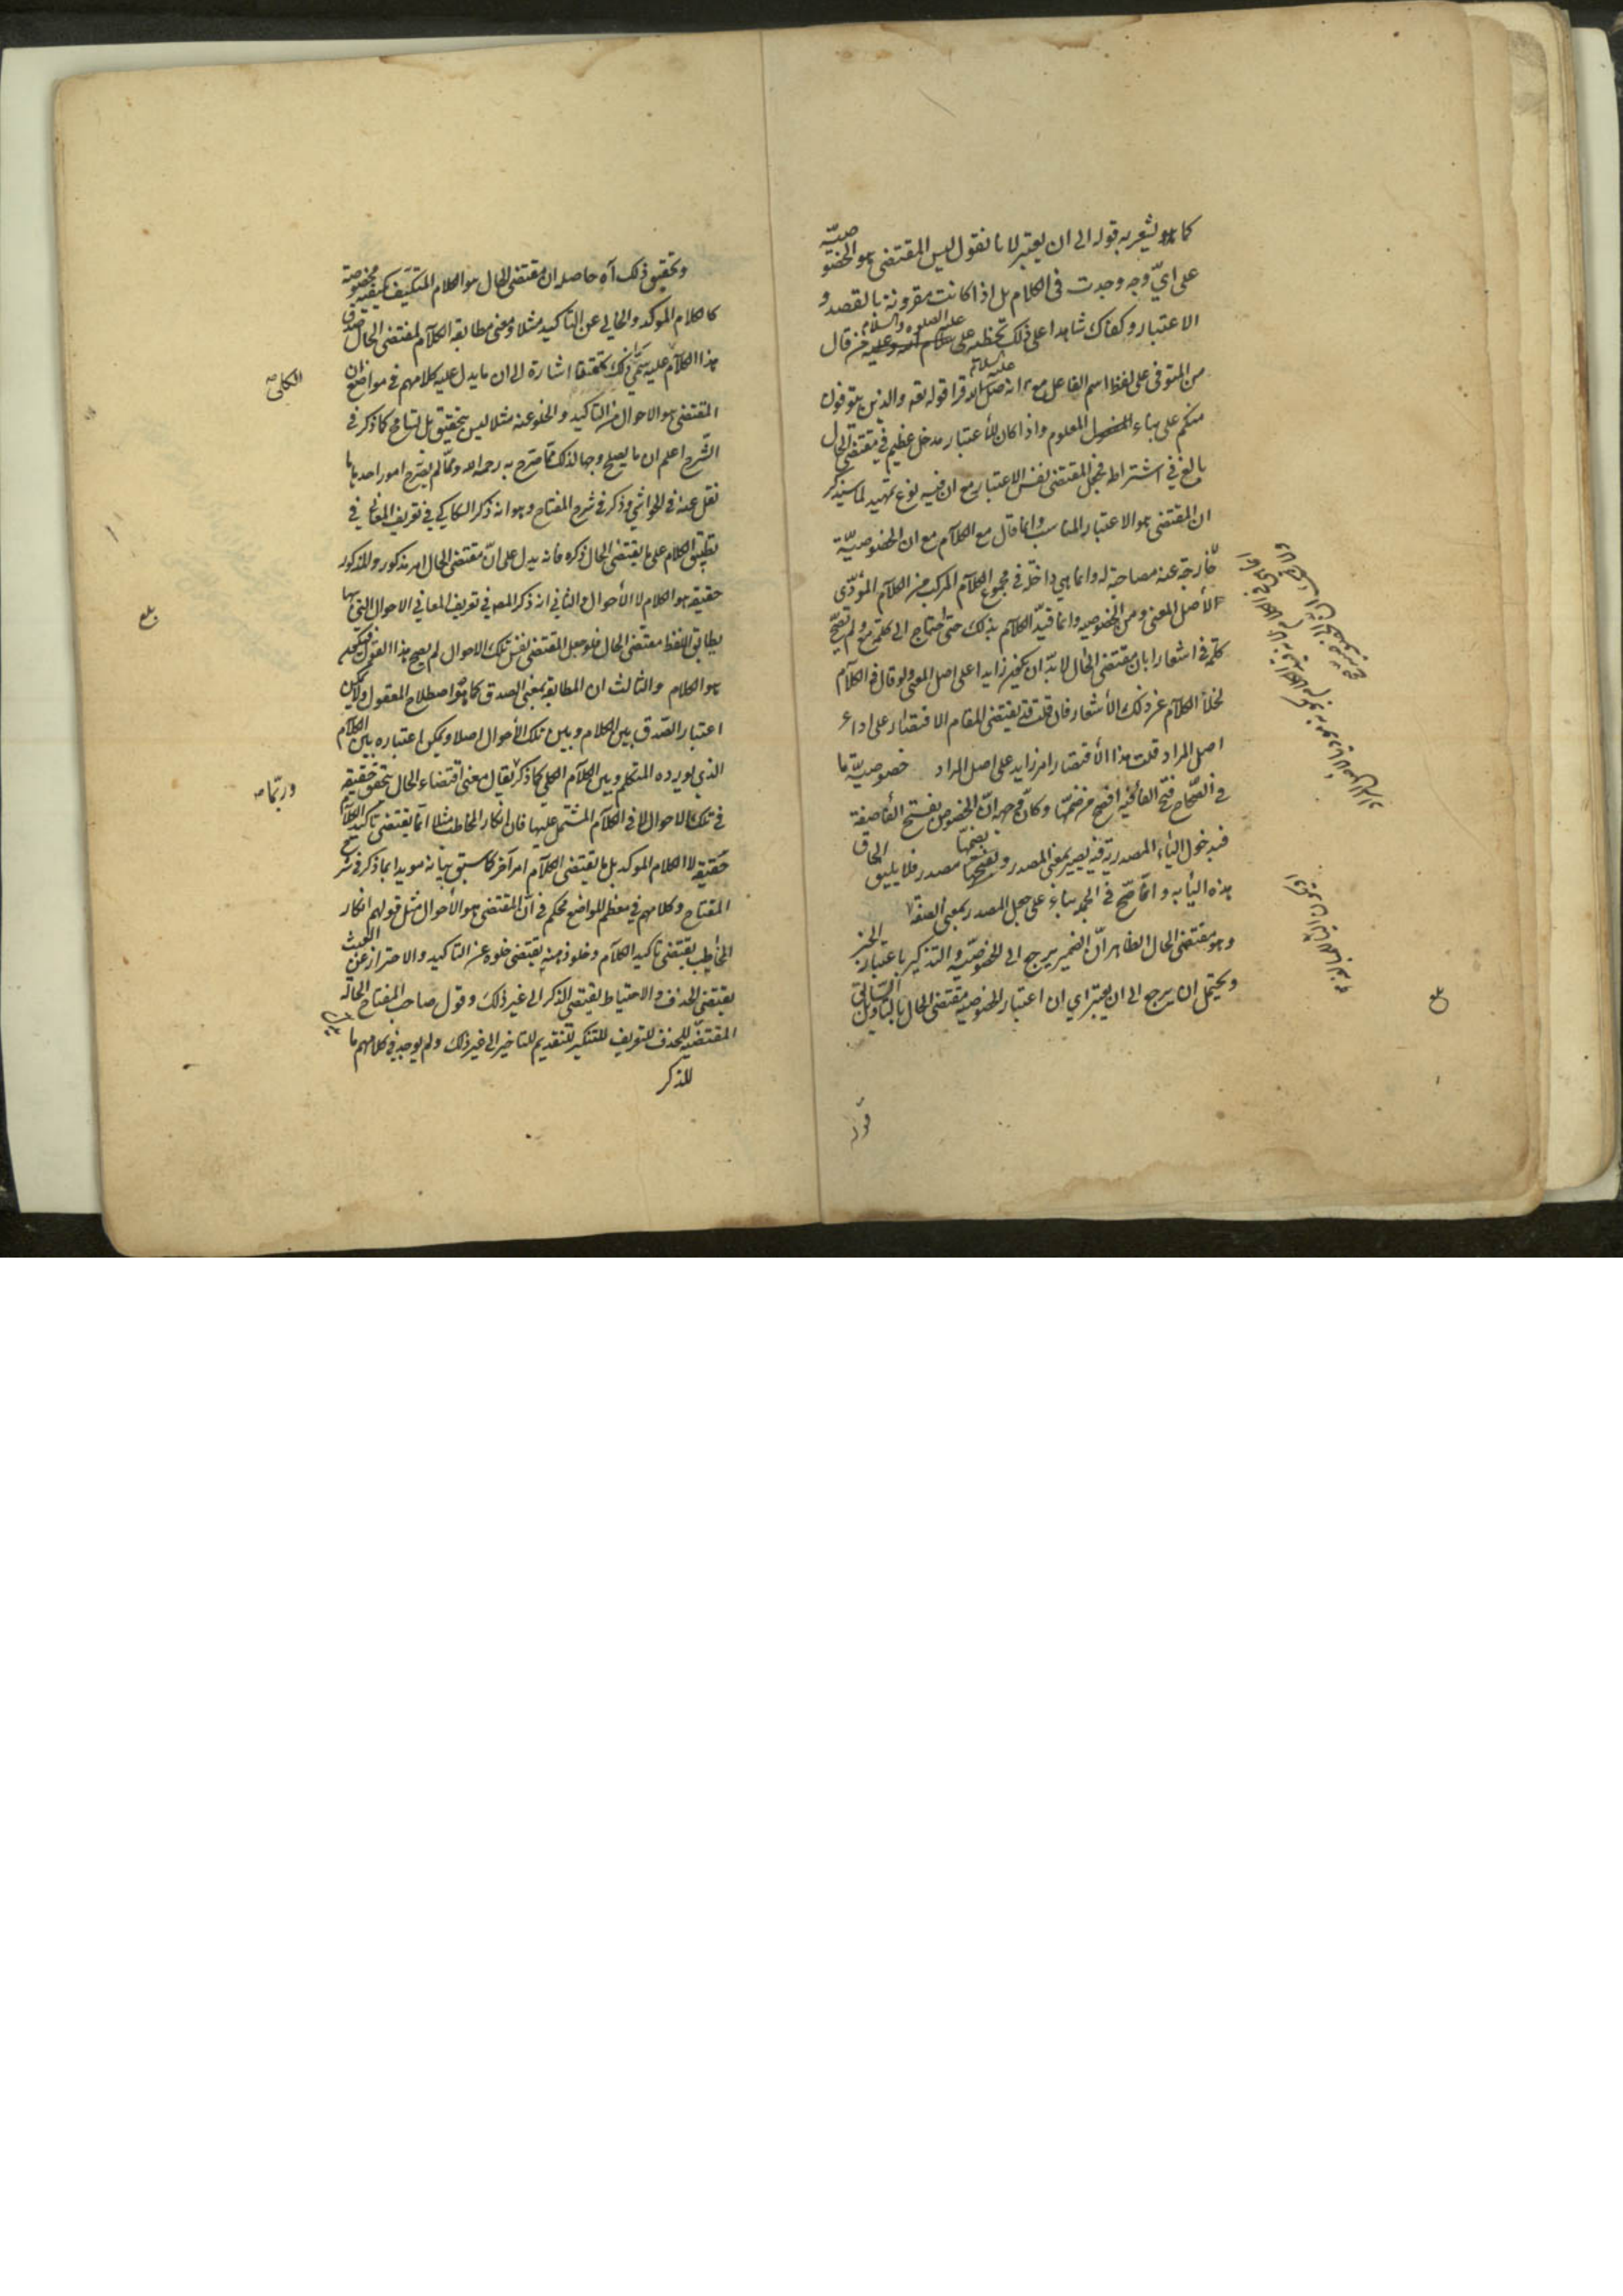 كما يشعر به قوله الى ان يعتبر لانا نقول ليس المقتضى هو الخصوصيّة
على ايّ وجه وجدت فى الكلام بل اذا كانت مقرونة بالقصد و
الاعتبار وكفاك شاهدا على ذلك تخطئه على عليه الصلوة والسلام من قال
من المتوفى على لفظ اسم الفاعل مع انه عليه السلام قرا قوله تعه والذين يتوفون
منكم على بناء المعلوم واذا كان للأعتبار مدخل عظيم في مقتضى الحال
بالغ في اشتراطه فجعل المقتضى نفس الاعتبار مع ان فيه نوع تمهيد لما سيذكر
ان المقتضى هو الاعتبار المناسب وانما قال مع الكلام مع ان الخصوصيّة
خارجة عنه مصاحبة له وانما هي داخلة في مجموع الكلام المركب من الكلام المؤدّى
لأصل المعنى ومن الخصوصيه وانما قيّد الكلام بذلك حتى احتاج الى كلمة مع ولم تصحّ
كلمة في اشعارا بان مقتضى الحال لابدّ ان يكون زايدا على اصل المعنى ولو قال في الكلام
لخلا الكلام عن ذلك الأشعار فان قلت قد يقتضى المقام الاقتصار على اداء
اصل المراد قلت هذا الأقتصار امر زايد على اصل المراد خصوصيّة ما
في الصّحاح فتح الخاء فيه افصح من ضمّها وكأن وجهه انّ الخصوص بفتح الخاء صفة
فبدخول الياء المصدرية فيه يصير بمعنى المصدر وبضمّها مصدر فلا يليق الحاق
هذه الياء به وانّما صّح في الجملة بناء على جعل المصدر بمعنى الصفة
وهو مقتضى الحال الظاهر انّ الضمير يرجع الى الخصوصيّة والتذكير باعتبار الخبر
ويحتمل ان يرجع الى ان يعتبر اي ان اعتبار الخصوصيه مقتضى الحال بالتاويل السّابق
قوله
وتحقيق ذلك آه حاصله ان مقتضى الحال هو الكلام المتكيّف بكيفية مخصوصة
كالكلام الموكد والخالي عن التاكيد مثلا ومعنى مطابقة الكلام لمقتضى الحال صدق
هذا الكلام عليه سمّى ذلك تحقيقا اشارة الى ان ما يدل عليه كلامهم في مواضع ان
الكلى صح
المقتضى هو الاحوال من التاكيد والخلو عنه مثلا ليس بتحقيق بل تسامح كما ذكر فى
الشرح اعلم ان ما يصلح وجها لذلك ممّا صّرح به رحمه الله وممّا لم يصّرح امور احدها ما
نقل عنه في الحواشي وذكر في شرح المفتاح وهو انه ذكر السكاكي في تعريف المعاني في
تطبيق الكلام على ما يقتضى الحال ذكره فانه يدل على انّ مقتضى الحال امر مذكور والمذكور
حقيقه هو الكلام لا الأحوال والثاني انه ذكر المصه في تعريف المعاني الاحوال التي بها
بلغ
يطابق اللفظ مقتضى الحال فلو جعل المقتضى نفس تلك الاحوال لم يصح هذا القول
هو الكلام والثالث ان المطابقه بمعنى الصدق كما هو اصطلاح المعقول ولا يمكن
اعتبار الصّدق بين الكلام وبين تلك الأحوال اصلا ويمكن اعتباره بين الكلام
الذي يورده المتكلم وبين الكلام الكلي كما ذكر يقال معنى اقتضاء الحال يتحقق حقيقه
وربّما صح
في تلك الاحوال لا في الكلام المشتمل عليها فان انكار المخاطب مثلا انّما يقتضى تاكيد الكلام
حقيقه لا الكلام الموكد بل ما يقتضى الكلام امر آخر كما سبق بيانه مويدا بما ذكر في شرح
المفتاح وكلامهم في معظم المواضع محكم في انّ المقتضى هو الأحوال مثل قولهم انكار
المخاطب يقتضى تاكيد الكلام وخلو ذهنه يقتضى خلوه عن التاكيد والاحتراز عن العبث
يقتضى الحذف والاحتياط يقتضى الذكر الى غير ذلك وقول صاحب المفتاح الحالة
المقتضيه للحذف للتعريف للتنكير للتقديم للتاخير الى غير ذلك ولم يوجد في كلامهم ما
للذكر